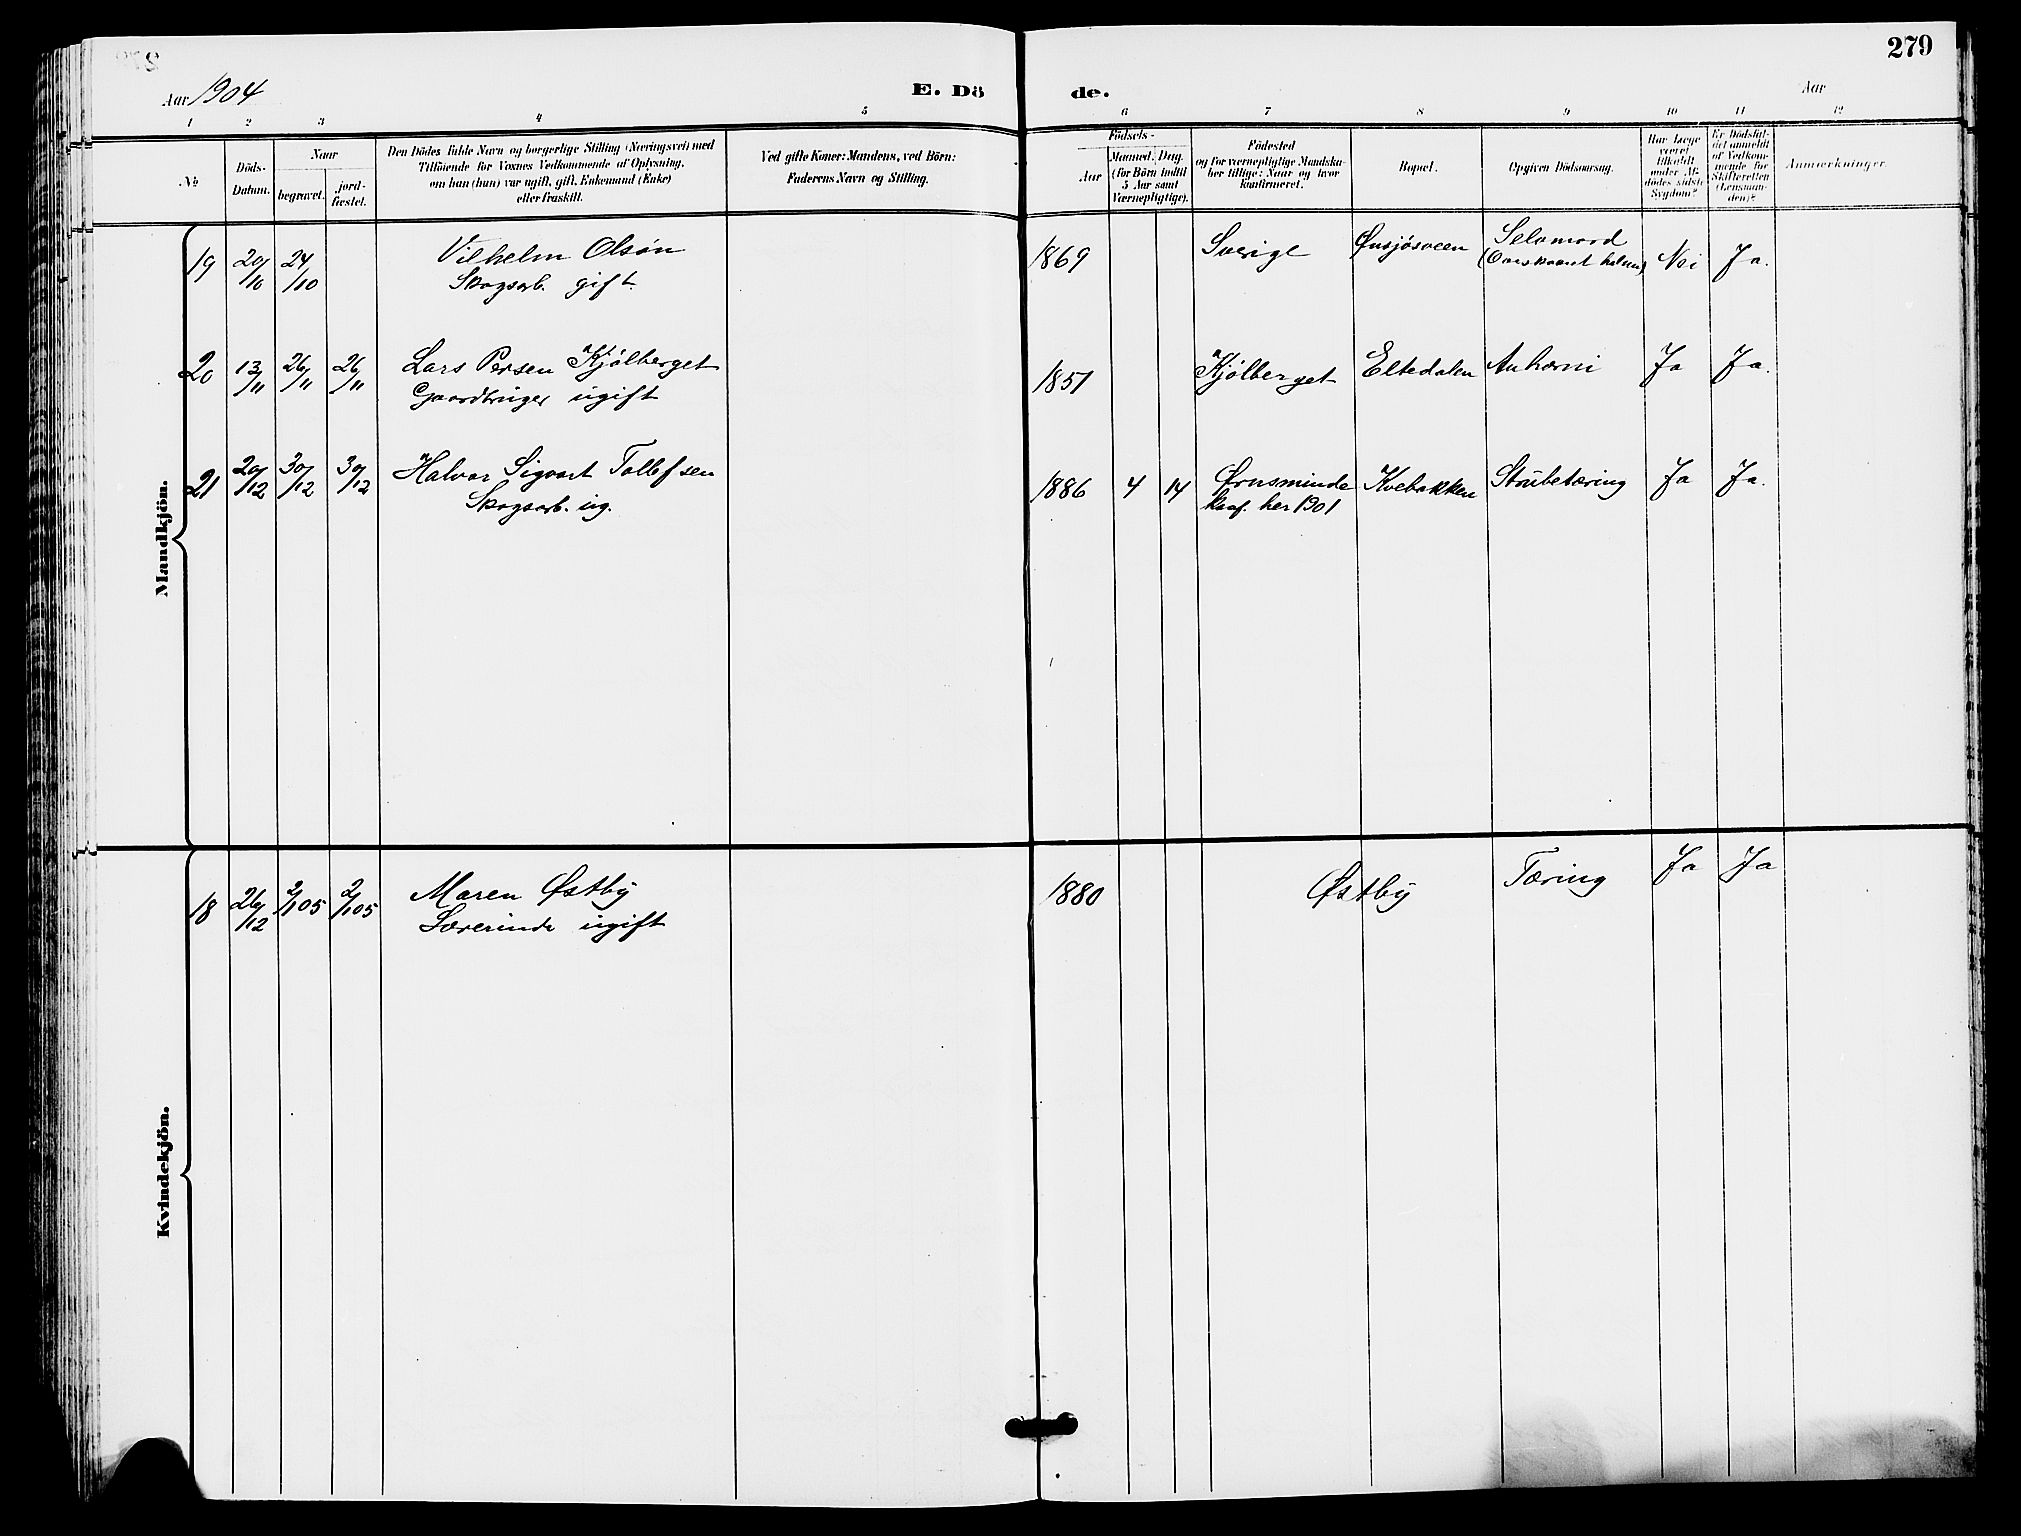 279
Aar 1904
E. Dö
de.
Aar
1 2 3 4 5 6 7 8 9 10 11 12
No
Döds-
Datum.
Naar
begravet.
jord-
fæstet.
Den Dödes fulde Navn og borgerlige Stilling (Næringsvei) med
Tilföiende for Voxnes Vedkommende af Oplysning,
om han (hun) var ugift, gift, Enkemand (Enke)
eller fraskilt.
Ved gifte Koner: Mandens, ved Börn:
Faderens Navn og Stilling.
Födsels-
Aar
Maaned. Dag.
(for Börn indtil
5 Aar samt
Værnepligtige).
Födested
og for værnepligtige Mandska-
ber tillige: Naar og hvor
konfirmeret.
Bopæl.
Opgiven Dödsaarsag.
Har Læge
været
tilkaldt
under Af-
dödes sidste
Sygdom?
Er Dödsfal-
det anmeldt
af Vedkom-
mende for
Skifteretten
(Lensman-
den)?
Anmærkninger.
Mandkjön.
19 20/10 24/10 Vilhelm Olsön 1869 Sverige Selvmord Nei Ja.
Skogsarb. gift.
20 13/11 26/11 26/11 Lars Persen Kjölberget 1851 Kjölberget Eltedalen Ja Ja.
Gaardbruger ugift
21 20/12 30/12 30/12 Halvor Sigvart Tollefsen 1886 4 14 Ørnsminde Kvebakken Strubetæring Ja Ja.
Skogsarb. ug. konf. her 1901
Kvindekjön.
18 26/12 2/1 05 2/1 05 Maren Østby 1880 Østby Tæring Ja Ja
Lærerinde ugift